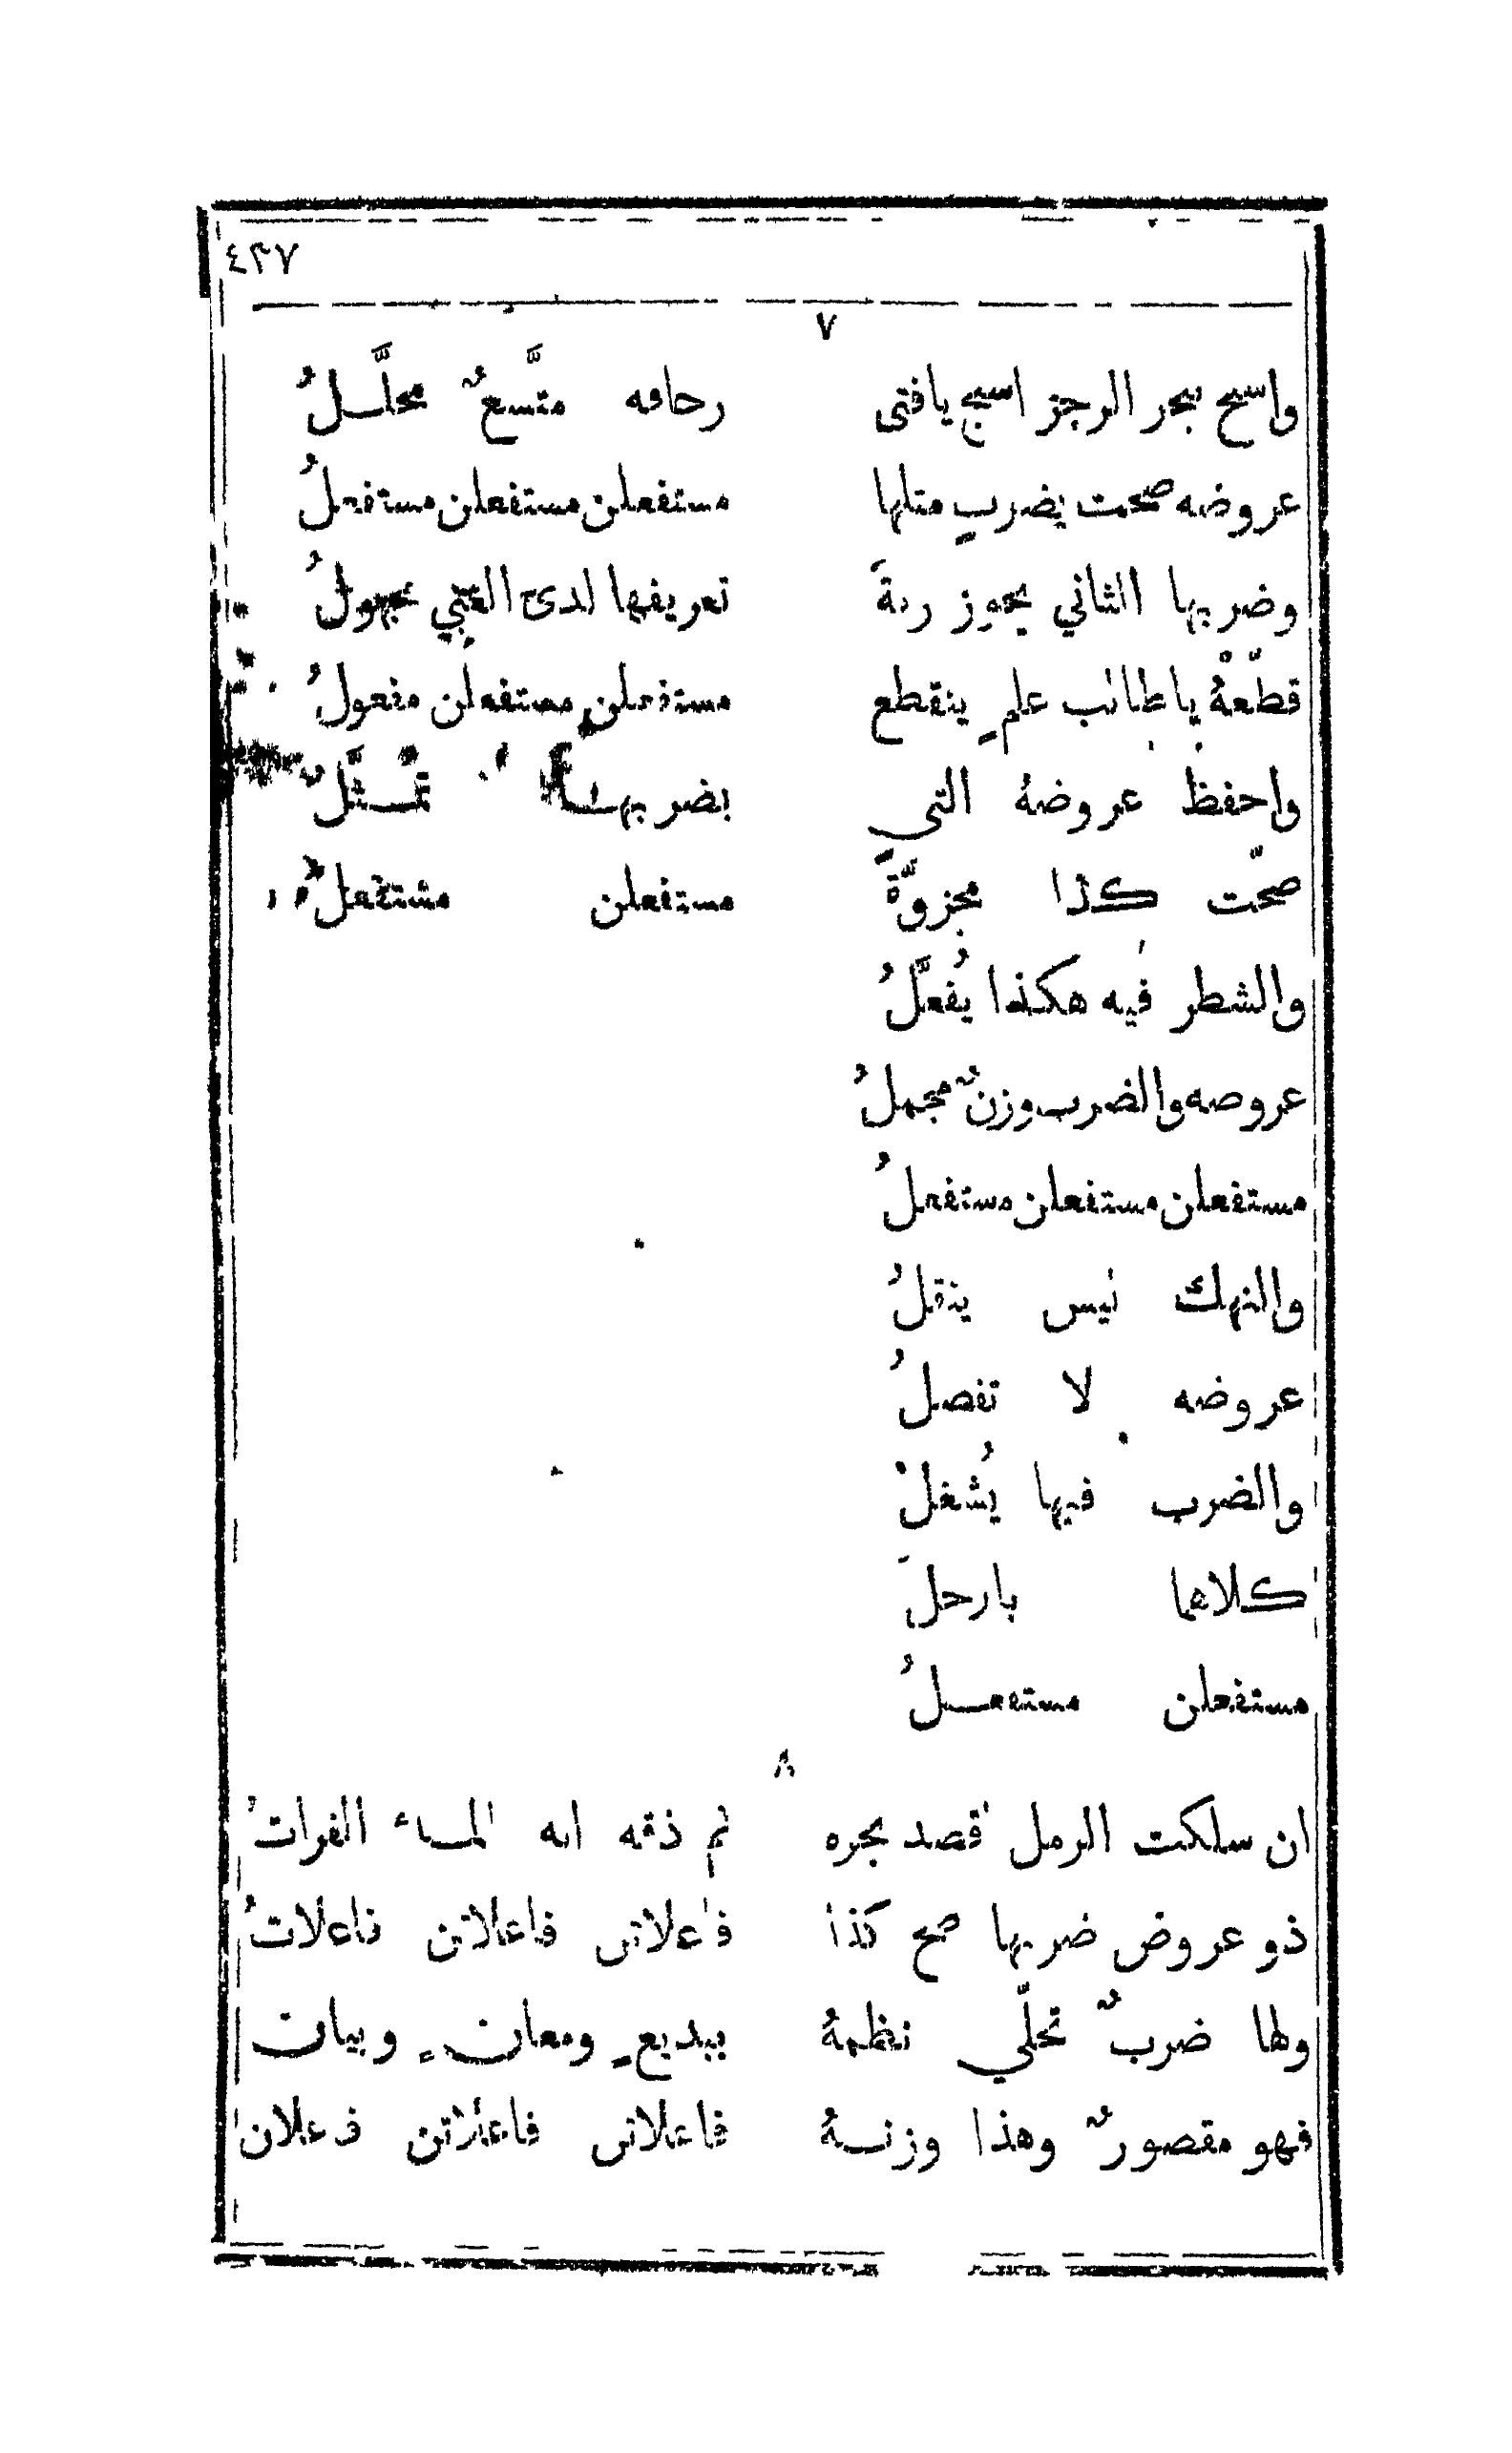 ٤٢٧
٧
واسبح ببحر الرجز اسبح يافتى زحافه متَّسعٌ محلَّلُ
عروضه صحت بضربٍ مثلها مستفعلن مستفعلن مستفعلُ
وضربها الثاني يجوز تعريفها لدى الغبي مجهولُ
قطّعهُ يا طالب علمٍ ينقطع مستفعلن مستفعلن مفعولُ
واحفظ عروضهُ التي بضربها تمثَّلُ
صحّت كذا مجزوَّةً مستفعلن مستفعلُ
والشطر فيه هكذا يُفعَّلُ
عروضه والضرب وزنٌ مجملُ
مستفعلن مستفعلن مستفعلُ
والنهك ليس ينقلُ
عروضه لا تفصلُ
والضرب فيها يُشغلُ
كلاهما يارجل
مستفعلن مستفعلُ
٨
ان سلكت الرمل اقصد بحره ثم ذقه انه الماء الفراتُ
ذو عروض ضربها صح كذا فاعلاتن فاعلاتن فاعلاتُ
ولها ضربٌ تحلّي نظمهُ ببديعٍ ومعانٍ وبيان
فهو مقصورٌ وهذا وزنهُ فاعلاتن فاعلاتن فاعلان